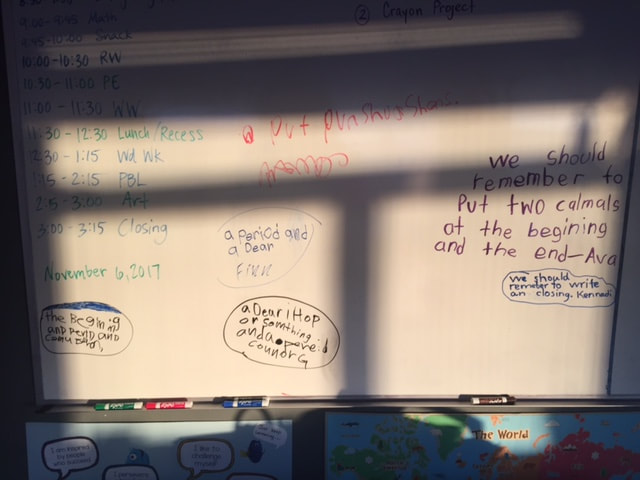 ② Crayon Project
9:00-9:45 Math
9:45-10:00 Snack
10:00-10:30 RW
10:30-11:00 PE
11:00-11:30 WW
11:30-12:30 Lunch/Recess
12:30-1:15 Wd Wk
1:45-2:15 PBL
2:15-3:00 Art
3:00-3:15 Closing
November 6, 2017
Put
a period and
a Dear
Finn
we should
remember to
Put two calmals
at the begining
and the end-Ava
we should
remeter to write
an closing. Kennedi
the Begining
and
and
a Dear i Hop
or somthing
and a pereid
connor G
I am inspired
by people
who succeed
I like to
challenge
myself
The World